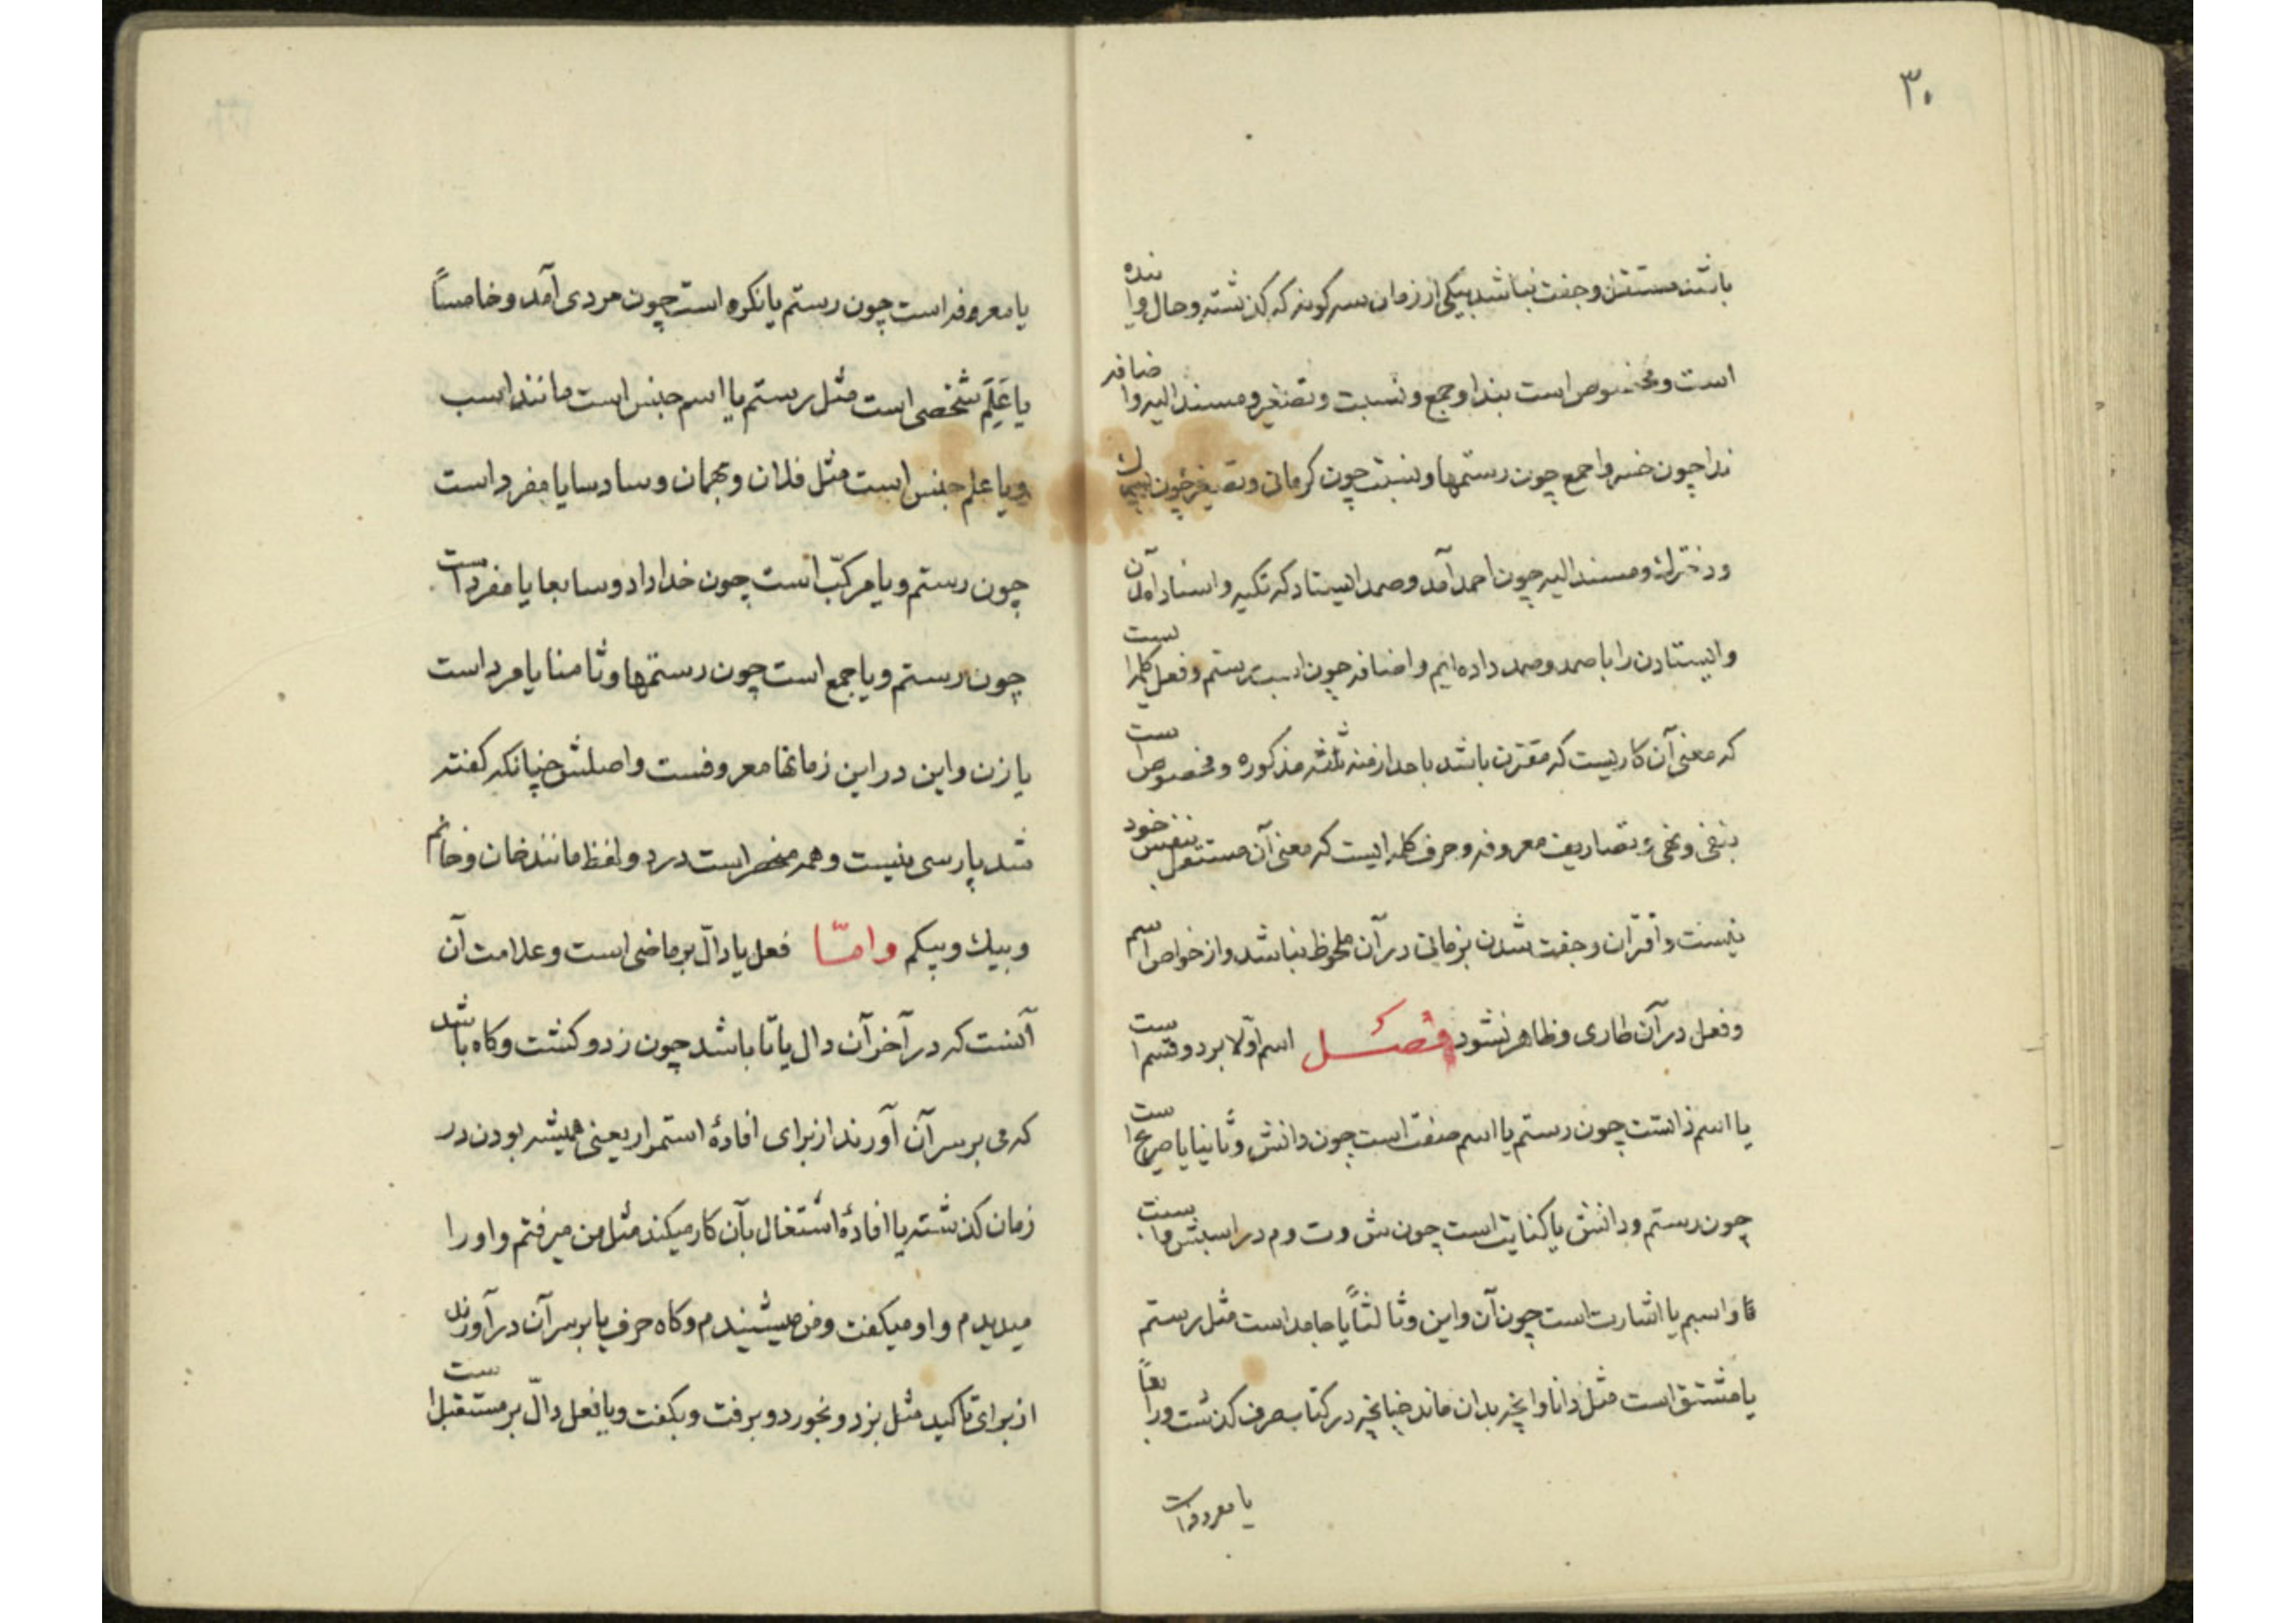 ۳۰
باشد مستقل و جفت نباشد بیکی از زمان سه کونه که کذشته و حال و اینده
است و مخصوص است بندا و جمع و نسبت و تصغیر و مسند الیه و اضافه
ندا چون خسروا جمع چون رستمها و نسبت چون کرمانی و تصغیر چون
و دخترك و مسند الیه چون احمد آمد و صمد ایستاد که تکیه و اسناد آمدن
و ایستادن را با صمد و صمد داده ایم و اضافه چون اسب رستم و فعل کلمه است
که معنی آن کاریست که مقترن باشد باحد ازمنه ثلثه مذکوره و مخصوص است
بنفی و نهی و بتصاریف معروفه و حرف کلمه ایست که معنی آن مستقل بنفس خود
نیست و اقتران و جفت شدن بزمانی در آن ملحوظ نباشد و از خواص اسم
و فعل در آن طاری و ظاهر نشود فصل اسم اولا بر دو قسم است
یا اسم ذاتست چون رستم یا اسم صفت است چون دانش و ثانیا یا صریح است
چون رستم و دانش یا کنایت است چون ش و ت و م در اسبش
و اسبم یا اشارت است چون آن و این و ثالثاً یا جامد است مثل رستم
یا مشتق است مثل دانا و انچه بدان ماند چنانچه در کتاب صرف کذشت و رابعاً
یا معروفه است
یا معروفه است چون رستم یا نکره است چون مردی آمد و خامساً
یا عَلَم شخصی است مثل رستم یا اسم جنس است مانند اسب
و یا علم جنس است مثل فلان و بهمان و سادسا یا مفرد است
چون رستم و یا مرکّب است چون خداداد و سابعا یا مفرد است
چون رستم و یا جمع است چون رستمها و ثامنا یا مرد است
یا زن و این در این زمانها معروفست و اصلش چنانکه کفته
شد پارسی نیست و همه منحصر است در دو لفظ مانند خان و خانم
و بیك و بیکم و امّا فعل یا دالّ بر ماضی است و علامت آن
آنست که در آخر آن دال یا تا باشد چون زد و کشت و کاه باشد
که می بر سر آن آورند از برای افادهٔ استمرار یعنی همیشه بودن در
زمان کذشته یا افادهٔ اشتغال بآن کار میکند مثل من میرفتم و او را
میدیدم و او میکفت و من میشنیدم و کاه حرف با بر سر آن در آورند
از برای تاکید مثل بزد و بخورد و برفت و بکفت و یا فعل دالّ بر مستقبل است